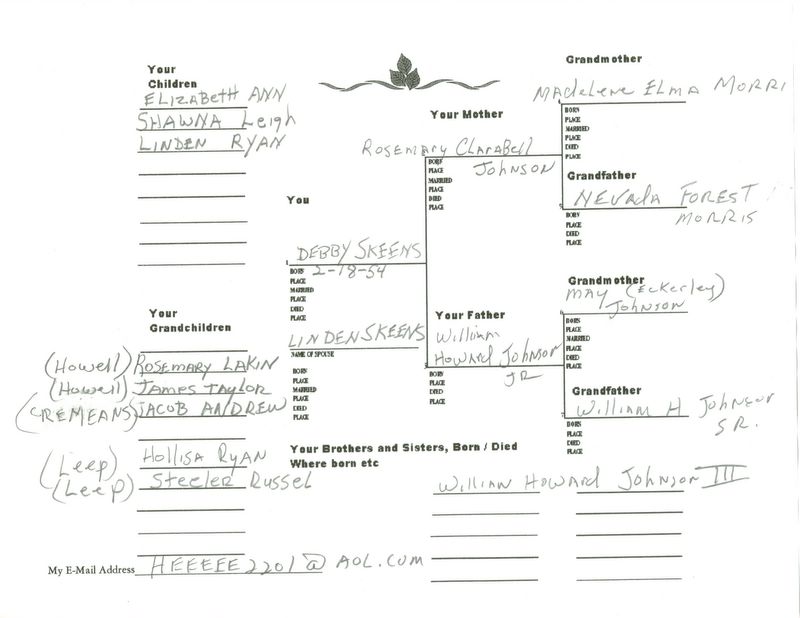 Your
Children
ELIZABETH ANN
SHAWNA Leigh
LINDEN RYAN
Your
Grandchildren
(Howell) ROSEMARY LAKIN
(Howell) JAMES TAYLOR
(CREMEANS) JACOB ANDREW
(Leep) HOLLISA RYAN
(Leep) Steeler Russel
My E-Mail Address HEEEEE2201@AOL.COM
You
DEBBY SKEENS
BORN 2-18-54
PLACE
MARRIED
PLACE
DIED
PLACE
LINDEN SKEENS
NAME OF SPOUSE
BORN
PLACE
MARRIED
PLACE
DIED
PLACE
Your Brothers and Sisters, Born / Died
Where born etc
William Howard Johnson III
Your Mother
ROSEMARY Clarabell
JOHNSON
BORN
PLACE
MARRIED
PLACE
DIED
PLACE
Your Father
William
Howard Johnson
JR
BORN
PLACE
DIED
PLACE
Grandmother
Madelene Elma MORRI
BORN
PLACE
MARRIED
PLACE
DIED
PLACE
Grandfather
NEVADA FOREST
MORRIS
BORN
PLACE
DIED
PLACE
Grandmother
MAY (Eckerley)
JOHNSON
BORN
PLACE
MARRIED
PLACE
DIED
PLACE
Grandfather
William H Johnson
SR.
BORN
PLACE
DIED
PLACE